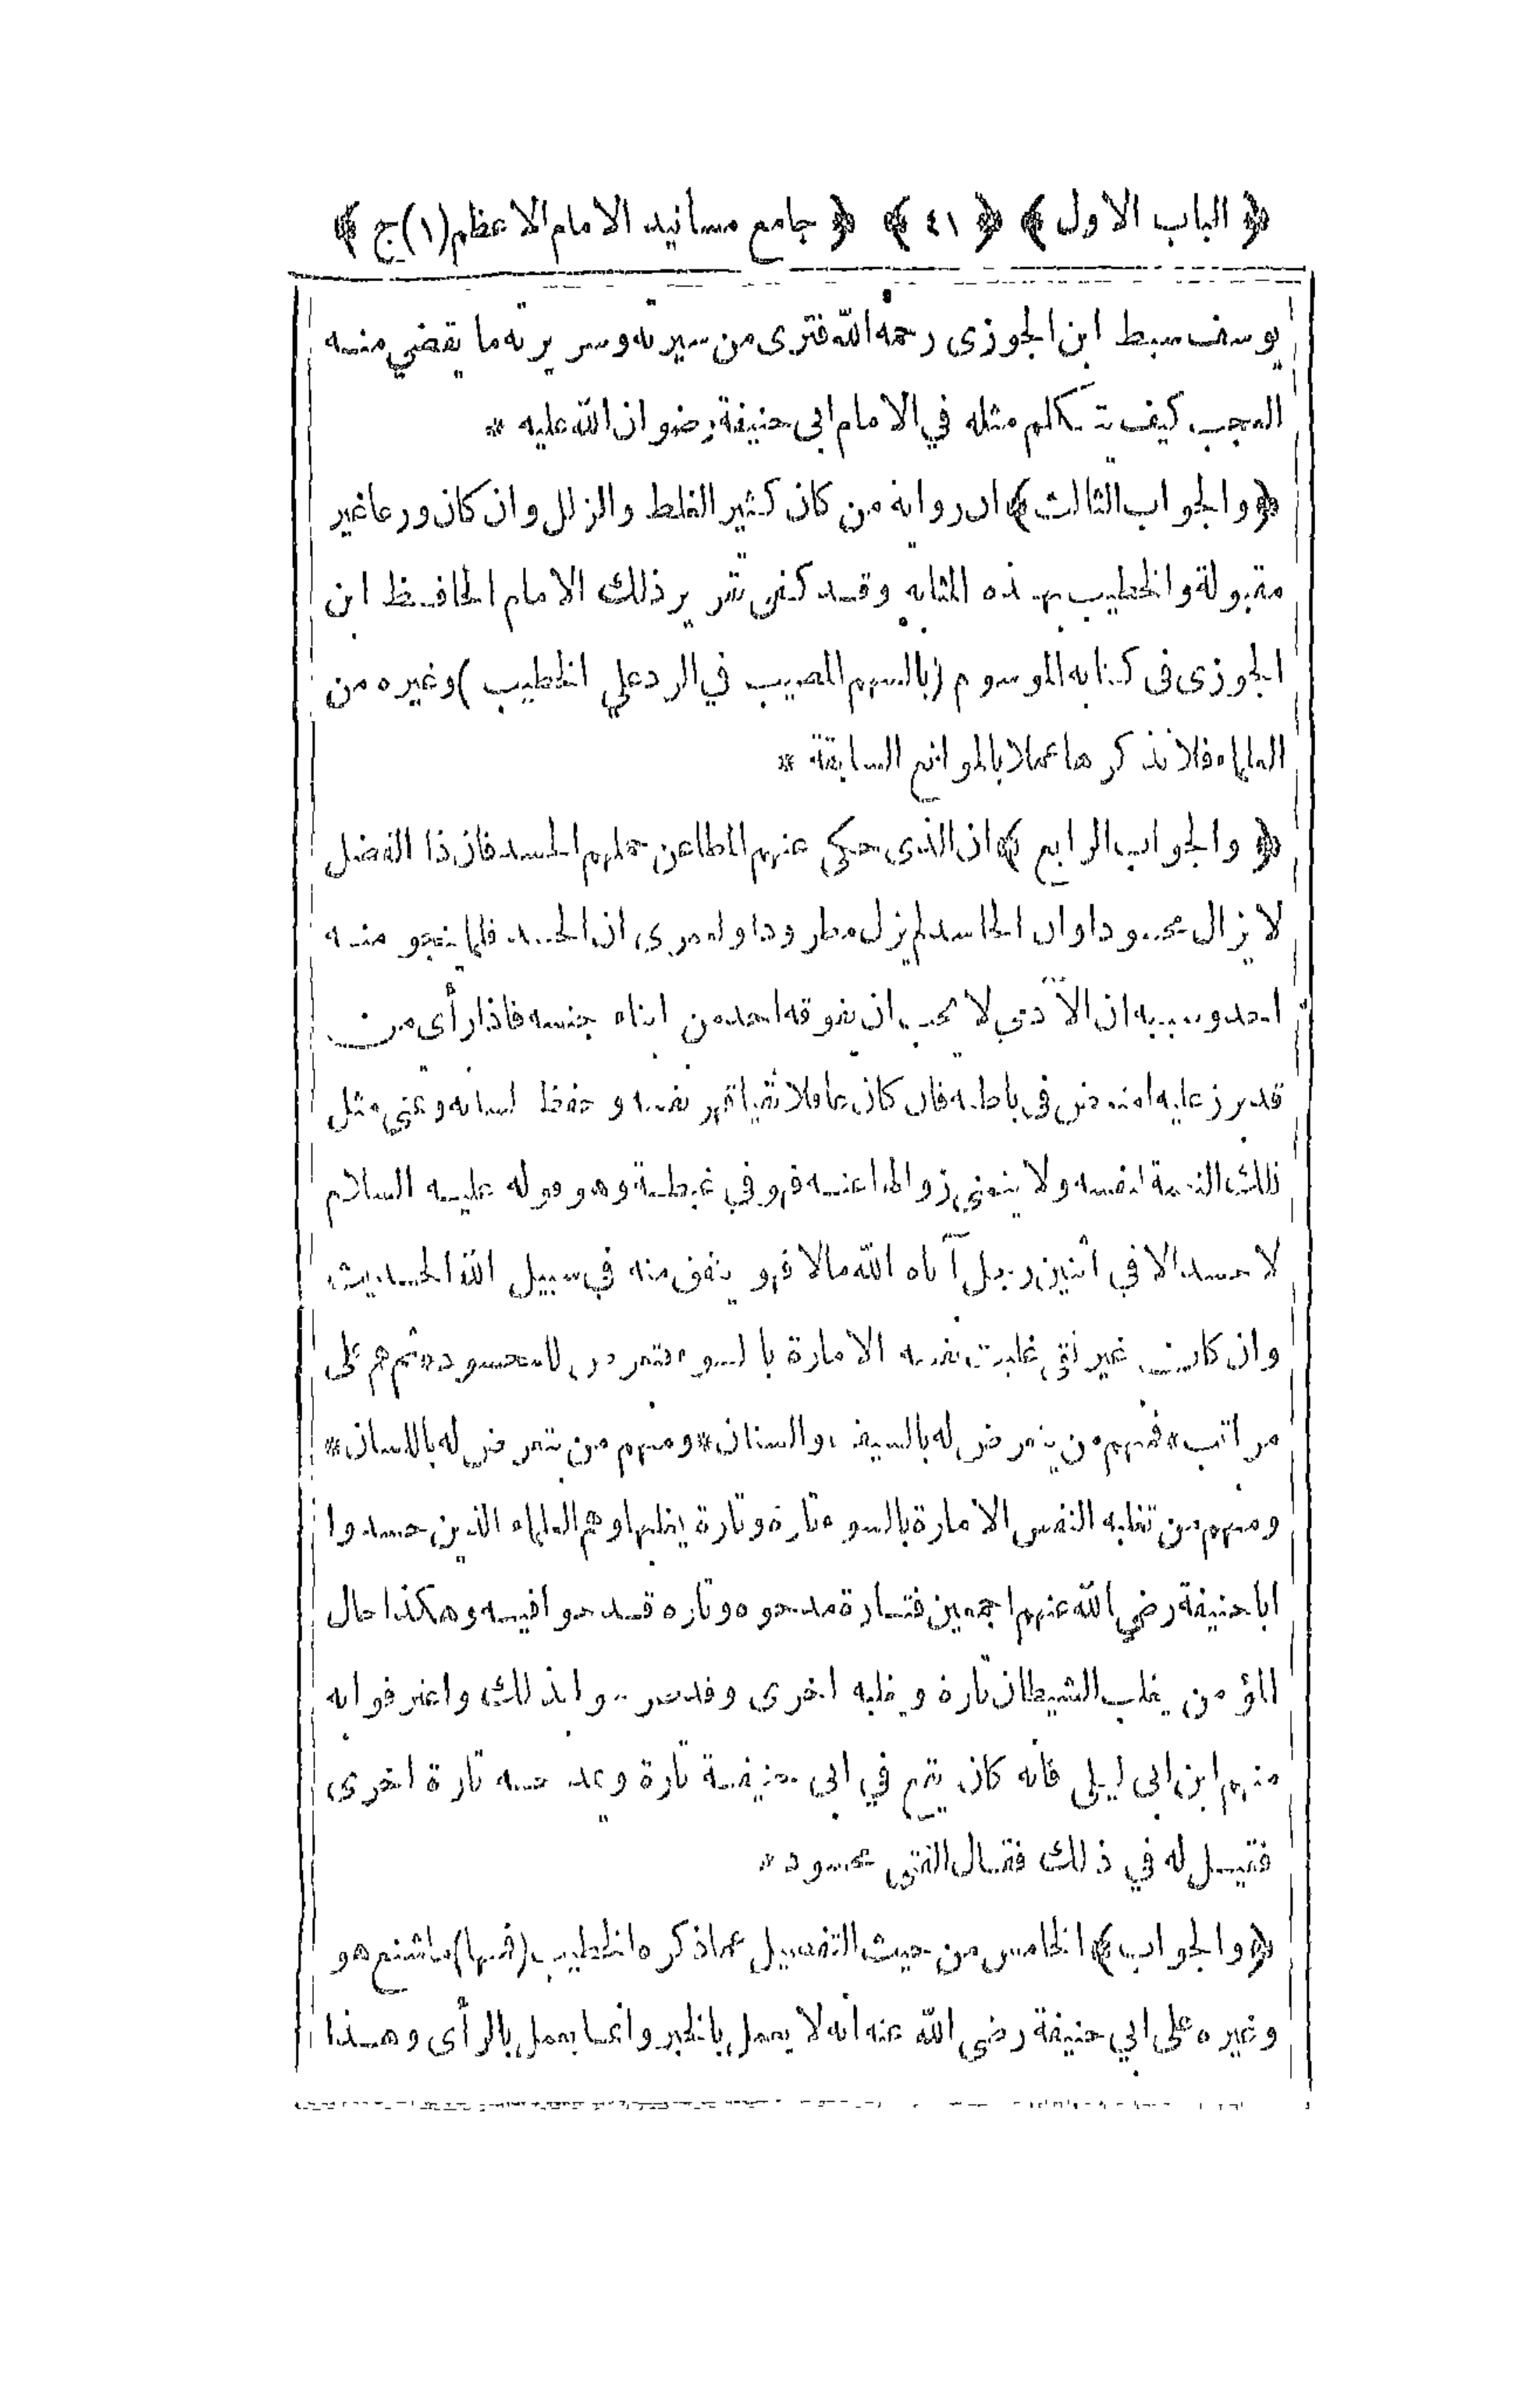 ﴿ الباب الاول ﴾ ﴿ ٤١ ﴾ ﴿ جامع مسانيد الامام الاعظم (١) ج ﴾
يوسف سبط ابن الجوزى رحمه الله فترى من سيرته وسر يرته ما يقضي منه
العجب كيف يتكلم مثله في الامام ابى حنيفة رضوان الله عليه *
﴿ والجواب الثالث ﴾ ان رواية من كان كثير الغلط والزلل وان كان ورعا غير
مقبولة والخطيب بهذه المثابه وقد كفى تقرير ذلك الامام الحافظ ابن
الجوزى فى كتابه الموسوم (بالسهم المصيب في الرد علي الخطيب) وغيره من
العلماء فلا نذكرها عملا بالموانع السابقة *
﴿ والجواب الرابع ﴾ ان الذى حكى عنهم المطاعن حملهم الحسد فان ذا الفضل
لا يزال محسودا وان الحاسد لم يزل مطرودا ولعمرى ان الحسد قلما ينجو منه
احد وسببه ان الآدمي لا يحب ان يفوقه احد من ابناء جنسه فاذا رأى من
قد برز عليه امتعض فى باطنه فان كان عاقلا تقيا قهر نفسه وحفظ لسانه وتمنى مثل
ذلك النعمة لنفسه ولا يتمنى زوالها عنه فهو في غبطة وهو قوله عليه السلام
لا حسد الا في اثنين رجل آتاه الله مالا فهو ينفق منه في سبيل الله الحديث
وان كان غير تقى غلبت نفسه الامارة بالسوء فتعرض للمحسود ثم هم على
مراتب * فمنهم من يتعرض له بالسيف والسنان * ومنهم من يتعرض له باللسان *
ومنهم من تغلبه النفس الامارة بالسوء تارة وتارة يغلبها وهم العلماء الذين حسدوا
ابا حنيفة رضي الله عنهم اجمعين فتارة مدحوه وتارة قدحوا فيه وهكذا حال
المؤمن يغلب الشيطان تارة ويغلبه اخرى وقد صرحوا بذلك واعترفوا به
منهم ابن ابى ليلى فانه كان يقع في ابى حنيفة تارة ويمدحه تارة اخرى
فقيل له في ذلك فقال الفتى محسود *
﴿ والجواب ﴾ الخامس من حيث التفصيل عما ذكره الخطيب (فمنها) ما شنع هو
وغيره على ابي حنيفة رضى الله عنه انه لا يعمل بالخبر وانما يعمل بالرأى وهذا